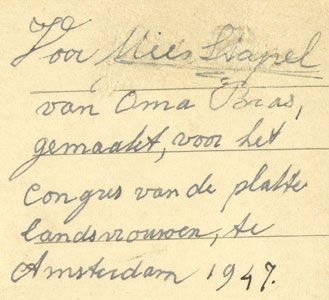 Voor Mies Stapel
van Oma Bras,
gemaakt, voor het
congres van de platte
landsvrouwen, te
Amsterdam 1947.